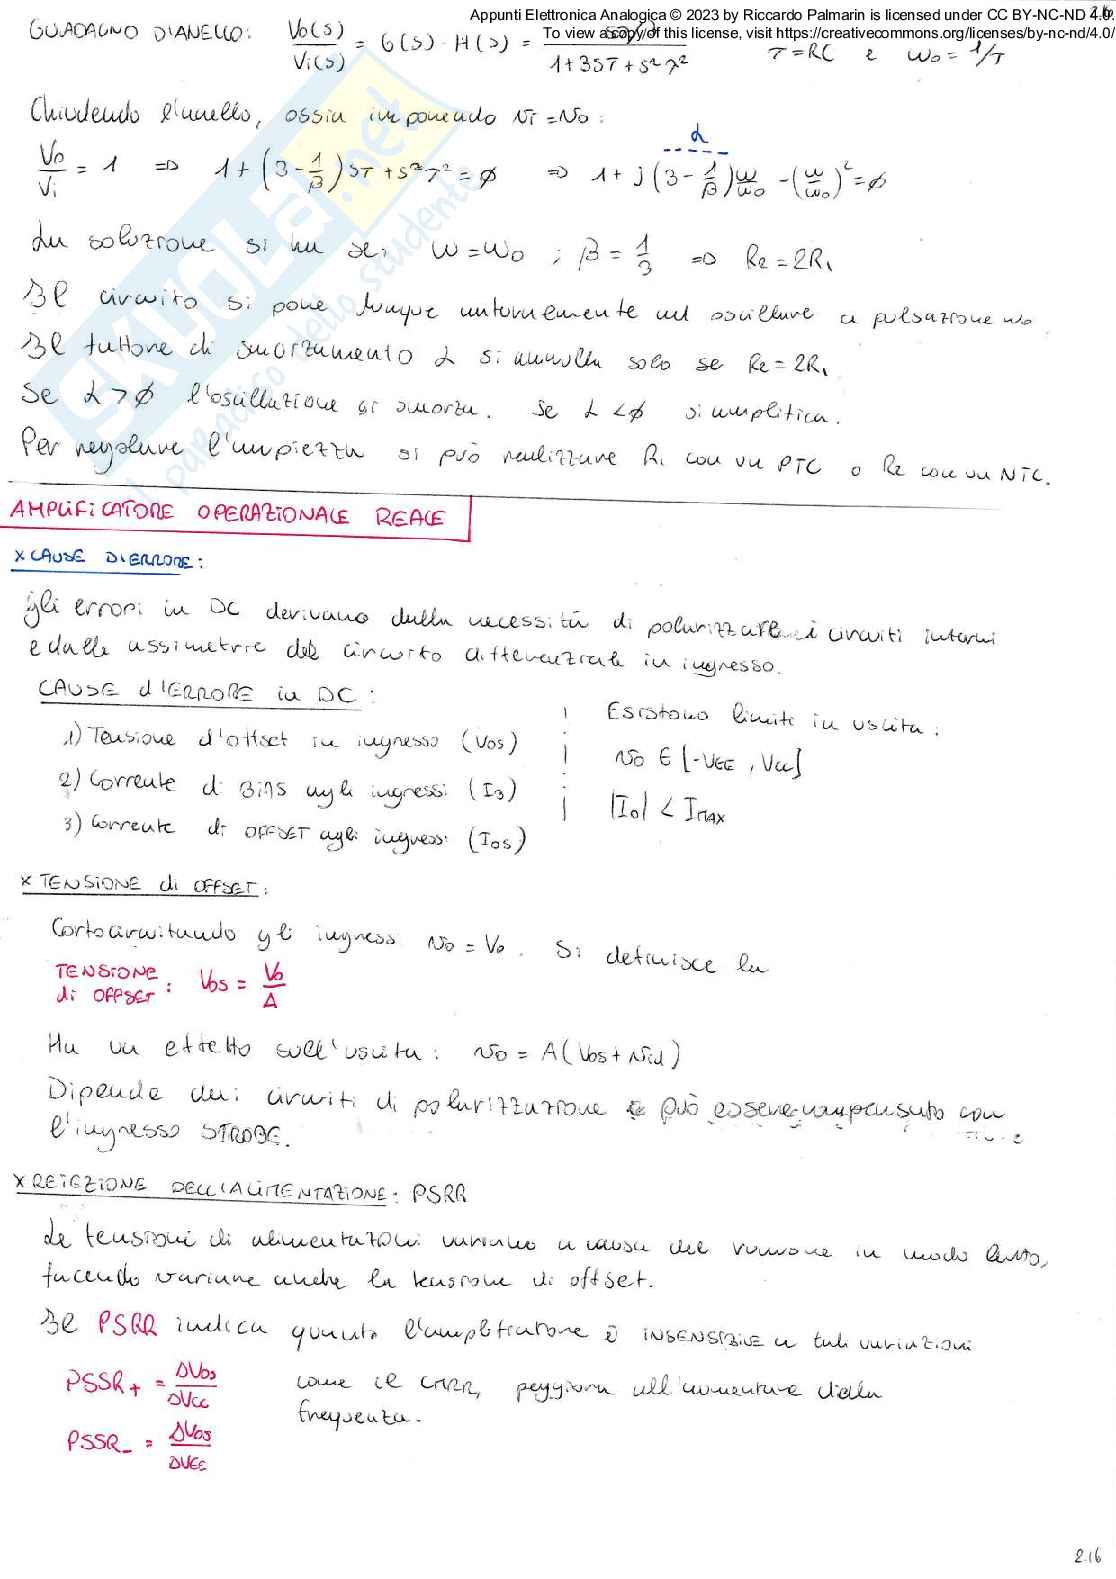 Appunti Elettronica Analogica © 2023 by Riccardo Palmarin is licensed under CC BY-NC-ND 4.0.
To view a copy of this license, visit https://creativecommons.org/licenses/by-nc-nd/4.0/
GUADAGNO D'ANELLO: Vo(s)/Vi(s) = G(s) · H(s) = / 1+3sτ+s²τ² τ=RC e ω₀=1/τ
Chiudendo l'anello, ossia imponendo Ni=No:
Vo/Vi = 1 => 1+(3-1/β)sτ+s²τ²=∅ => 1+j(3-1/β)ω/ω₀-(ω/ω₀)²=∅
α
La soluzione si ha se: ω=ω₀ ; β=1/3 => R2=2R1
Il circuito si pone dunque autonomente ad oscillare a pulsazione ω₀.
Il fattore di smorzamento α si annulla solo se R2=2R1
Se α>∅ l'oscillazione si smorza. Se α<∅ si amplifica.
Per regolare l'ampiezza si può realizzare R1 con un PTC o R2 con un NTC.
AMPLIFICATORE OPERAZIONALE REALE
x CAUSE D'ERRORE:
gli errori in DC derivano dalla necessità di polarizzare i circuiti interni
e dalle assimetrie del circuito differenziale in ingresso.
CAUSE d'ERRORE in DC:
1) Tensione d'offset in ingresso (Vos)
2) Corrente di BIAS agli ingressi (IB)
3) Corrente di OFFSET agli ingressi (Ios)
Esistono limite in uscita:
No ∈ [-VEE, Vcc]
|Io| < IMAX
x TENSIONE di OFFSET:
Cortocircuitando gli ingressi No=Vo. Si definisce la
TENSIONE di OFFSET: Vos = Vo/A
Ha un effetto sull'uscita: No = A(Vos+Nid)
Dipende dai circuiti di polarizzazione e può essere compensato con
l'ingresso STROBE.
x REIEZIONE DELL'ALIMENTAZIONE: PSRR
Le tensioni di alimentazioni variano a causa del rumore in modo lento,
facendo variare anche la tensione di offset.
Il PSRR indica quanto l'amplificatore è INSENSIBILE a tali variazioni
PSSR+ = ΔVos/ΔVcc
come il CMRR, peggiora all'aumentare della
frequenza.
PSSR- = ΔVos/ΔVEE
2.16
SKUOLA.net
il paradiso dello studente